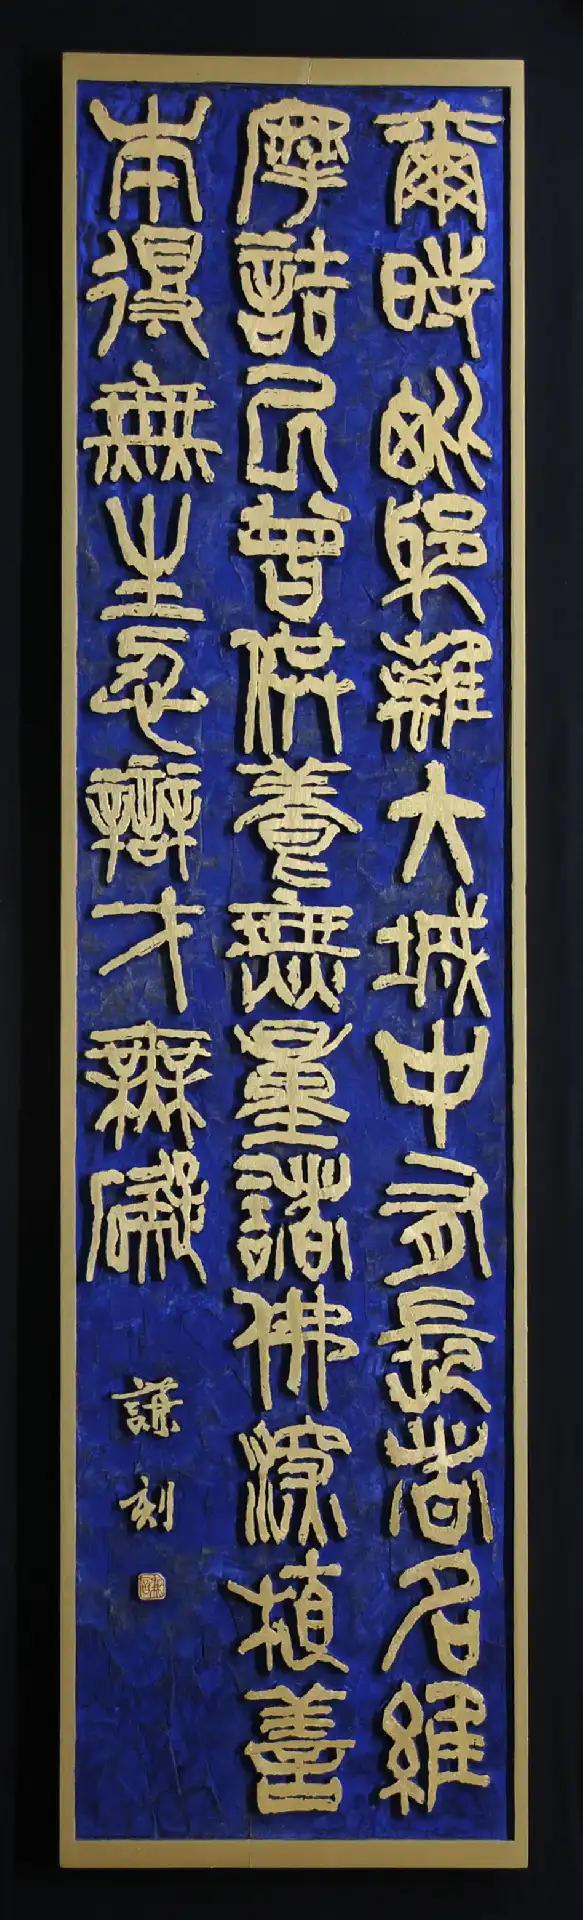 爾時毗耶離大城中有長者名維
摩詰已曾供養無量諸佛深植善
本得無生忍辯才無礙
謙刻